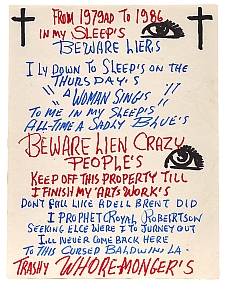 FROM 1979AD TO 1986
IN MY SLEEP'S
BEWARE LIERS
I LY DOWN TO SLEEP'S ON THE
THURSDAY'S
"A WOMAN SING'S"
TO ME IN MY SLEEP'S
ALL-TIME A SADLY BLUE'S
BEWARE LIEN CRAZY
PEOPLE'S
KEEP OFF THIS PROPERTY TILL
I FINISH MY 'ART'S WORK'S
DON'T FALL LIKE ADELL BRENT DID
I PROPHET ROYAL ROBERTSON
SEEKING ELSE WERE I TO JURNEY OUT
I.LL NEVER COME BACK HERE
TO THIS CURSED BALDWIN LA.
TRASHY WHORE-MONGER'S